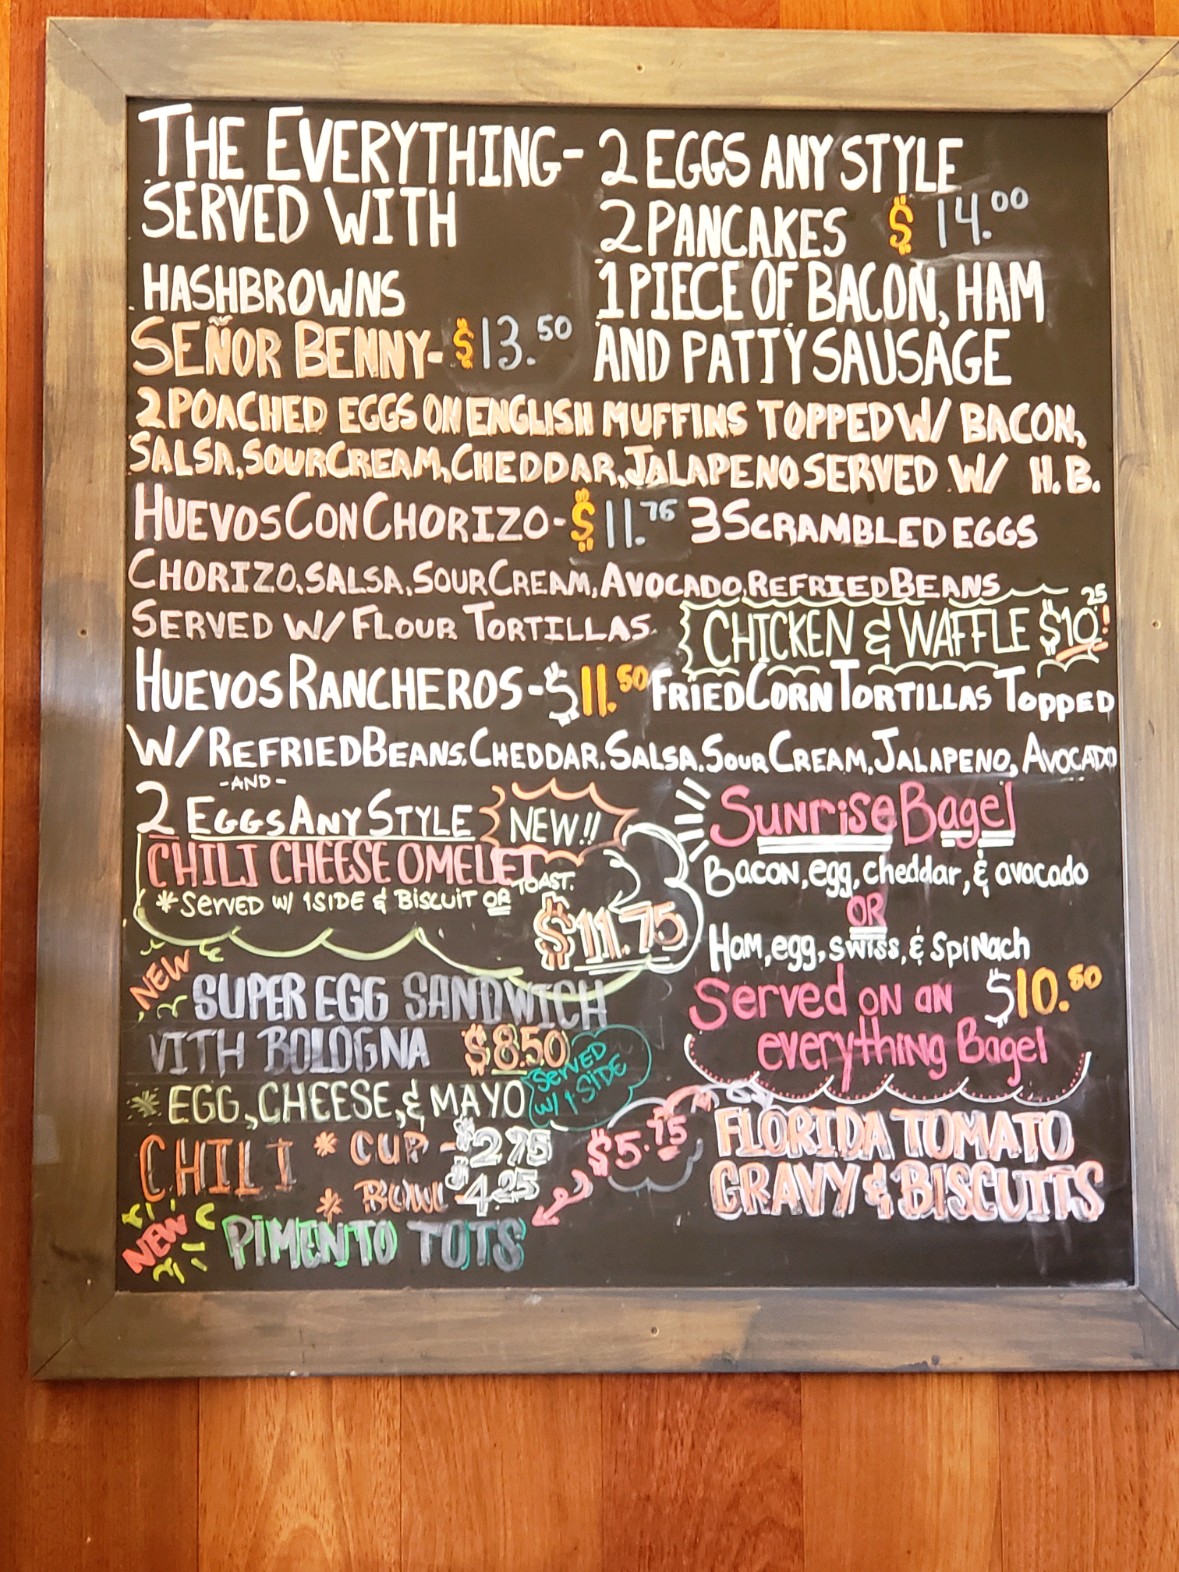 THE EVERYTHING- 2 EGGS ANY STYLE
SERVED WITH 2 PANCAKES $14.00
HASHBROWNS 1 PIECE OF BACON, HAM
AND PATTY SAUSAGE
SEÑOR BENNY- $13.50
2 POACHED EGGS ON ENGLISH MUFFINS TOPPED W/ BACON,
SALSA, SOUR CREAM, CHEDDAR, JALAPENO SERVED W/ H.B.
HUEVOS CON CHORIZO- $11.75 3 SCRAMBLED EGGS
CHORIZO, SALSA, SOUR CREAM, AVOCADO, REFRIED BEANS
SERVED W/ FLOUR TORTILLAS.
CHICKEN & WAFFLE $10.25!
HUEVOS RANCHEROS- $11.50 FRIED CORN TORTILLAS TOPPED
W/ REFRIED BEANS, CHEDDAR, SALSA, SOUR CREAM, JALAPENO, AVOCADO
-AND-
2 EGGS ANY STYLE
NEW!!
CHILI CHEESE OMELET
*SERVED W/ 1 SIDE & BISCUIT OR TOAST.
$11.75
Sunrise Bagel
Bacon, egg, cheddar, & avocado
OR
Ham, egg, swiss, & spinach
Served on an $10.50
everything Bagel
NEW
SUPER EGG SANDWICH
VITH BOLOGNA $8.50
*EGG, CHEESE, & MAYO
SERVED
W/ 1 SIDE
CHILI * CUP - $2.75
* BOWL $4.25
$5.75
FLORIDA TOMATO
GRAVY & BISCUITS
NEW
PIMENTO TOTS